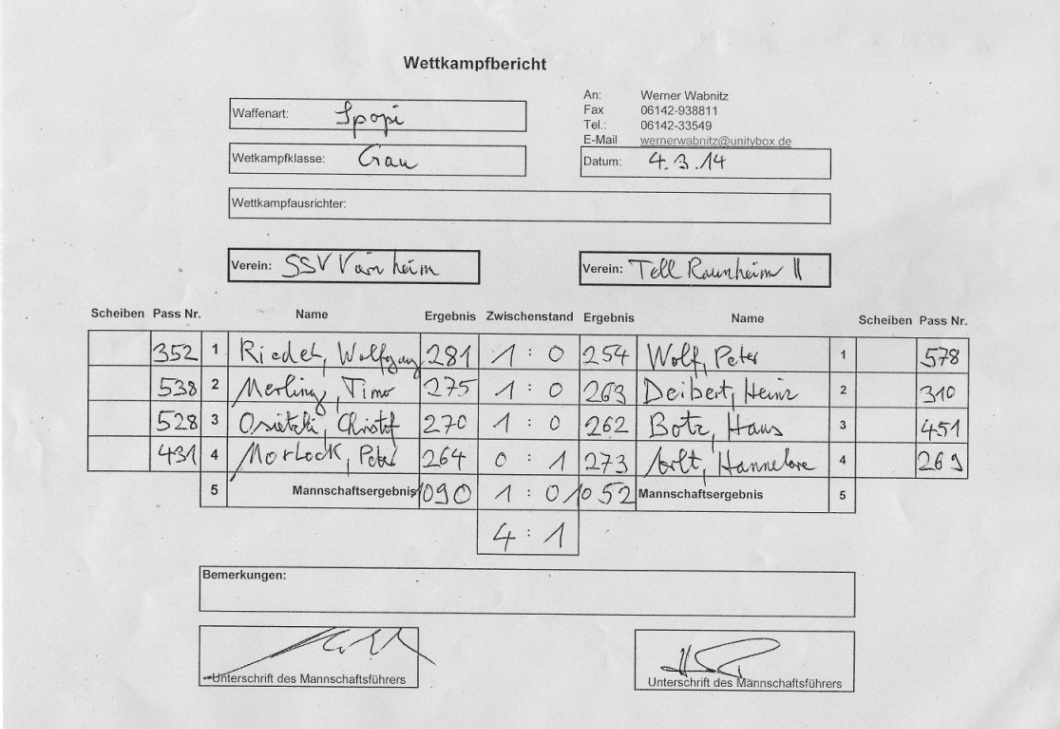 Wettkampfbericht
An: Werner Wabnitz
Waffenart: Spopi
Fax 06142-938811
Tel.: 06142-33549
E-Mail wernerwabnitz@unitybox.de
Wetkampfklasse: Gau
Datum: 4.3.14
Wettkampfausrichter:
Verein: SSV Verein: Tell Raunheim II
Scheiben Pass Nr. Name Ergebnis Zwischenstand Ergebnis Name Scheiben Pass Nr.
352 1 Riedel, Wolfgang 281 1 : 0 254 Wolf, Peter 1 578
538 2 Merling, Timo 275 1 : 0 263 Deibert, Heinz 2 310
528 3 270 1 : 0 262 Botz, Hans 3 451
431 4 Morlock, Peter 264 0 : 1 273 Arlt, Hannelore 4 269
5 Mannschaftsergebnis 1090 1 : 0 1052 Mannschaftsergebnis 5
4 : 1
Bemerkungen:
Unterschrift des Mannschaftsführers Unterschrift des Mannschaftsführers